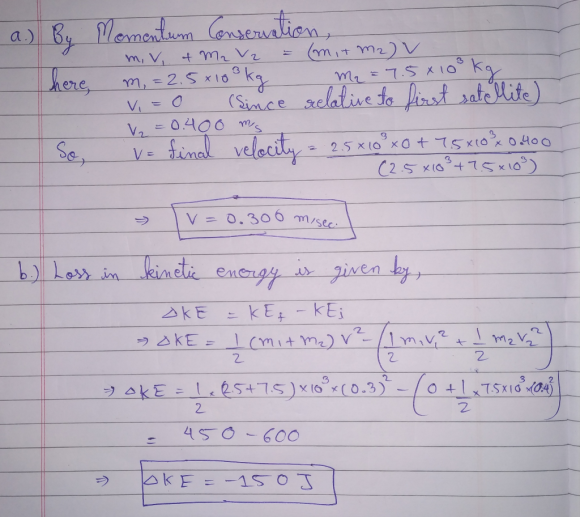 a.) By Momentum Conservation,
m₁V₁ + m₂V₂ = (m₁+m₂)V
here, m₁ = 2.5×10³kg m₂ = 7.5×10³ kg
V₁ = 0 (Since relative to first satellite)
V₂ = 0.400 m/s
So, V = final velocity = 2.5×10³×0 + 7.5×10³×0.400 / (2.5×10³+7.5×10³)
⇒ V = 0.300 m/sec.
b.) Loss in kinetic energy is given by,
ΔKE = KE_f − KE_i
⇒ ΔKE = 1/2 (m₁+m₂) V² − (1/2 m₁V₁² + 1/2 m₂V₂²)
⇒ ΔKE = 1/2 × (2.5+7.5)×10³×(0.3)² − (0 + 1/2 × 7.5×10³×(0.4)²)
= 450 − 600
⇒ ΔKE = −150 J